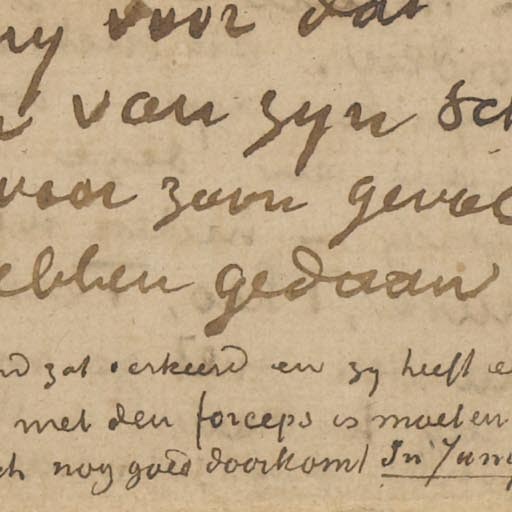 voor dat
van zyn sch
voor zoon gevoel
ebben gedaan
zat verkeerd en zy heeft e
met den forceps is moeten
ch nog goed doorkomt In Juny